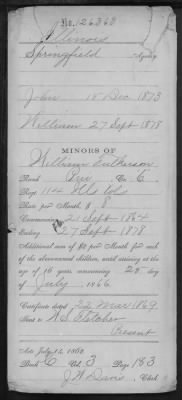 No. 126363
Illinois
Springfield Agency
John 18 Dec 1873
William 27 Sept 1878
MINORS OF
William
Rank Pvt Co. E
Regt 114 Ills Vols
Rate per Month, $ 8
Commencing 21 Sept 1864
Ending 27 Sept 1878
Additional sum of $2 per Month for each
of the abovenamed children, until arriving at the
age of 16 years, commencing 25" day
of July 1866.
Certificate dated 22 Mar 1869
Sent to W.S. Fletcher
Present
Acts July 14, 1862
Book C Vol. 3 Page 183
J W Davis, Clerk